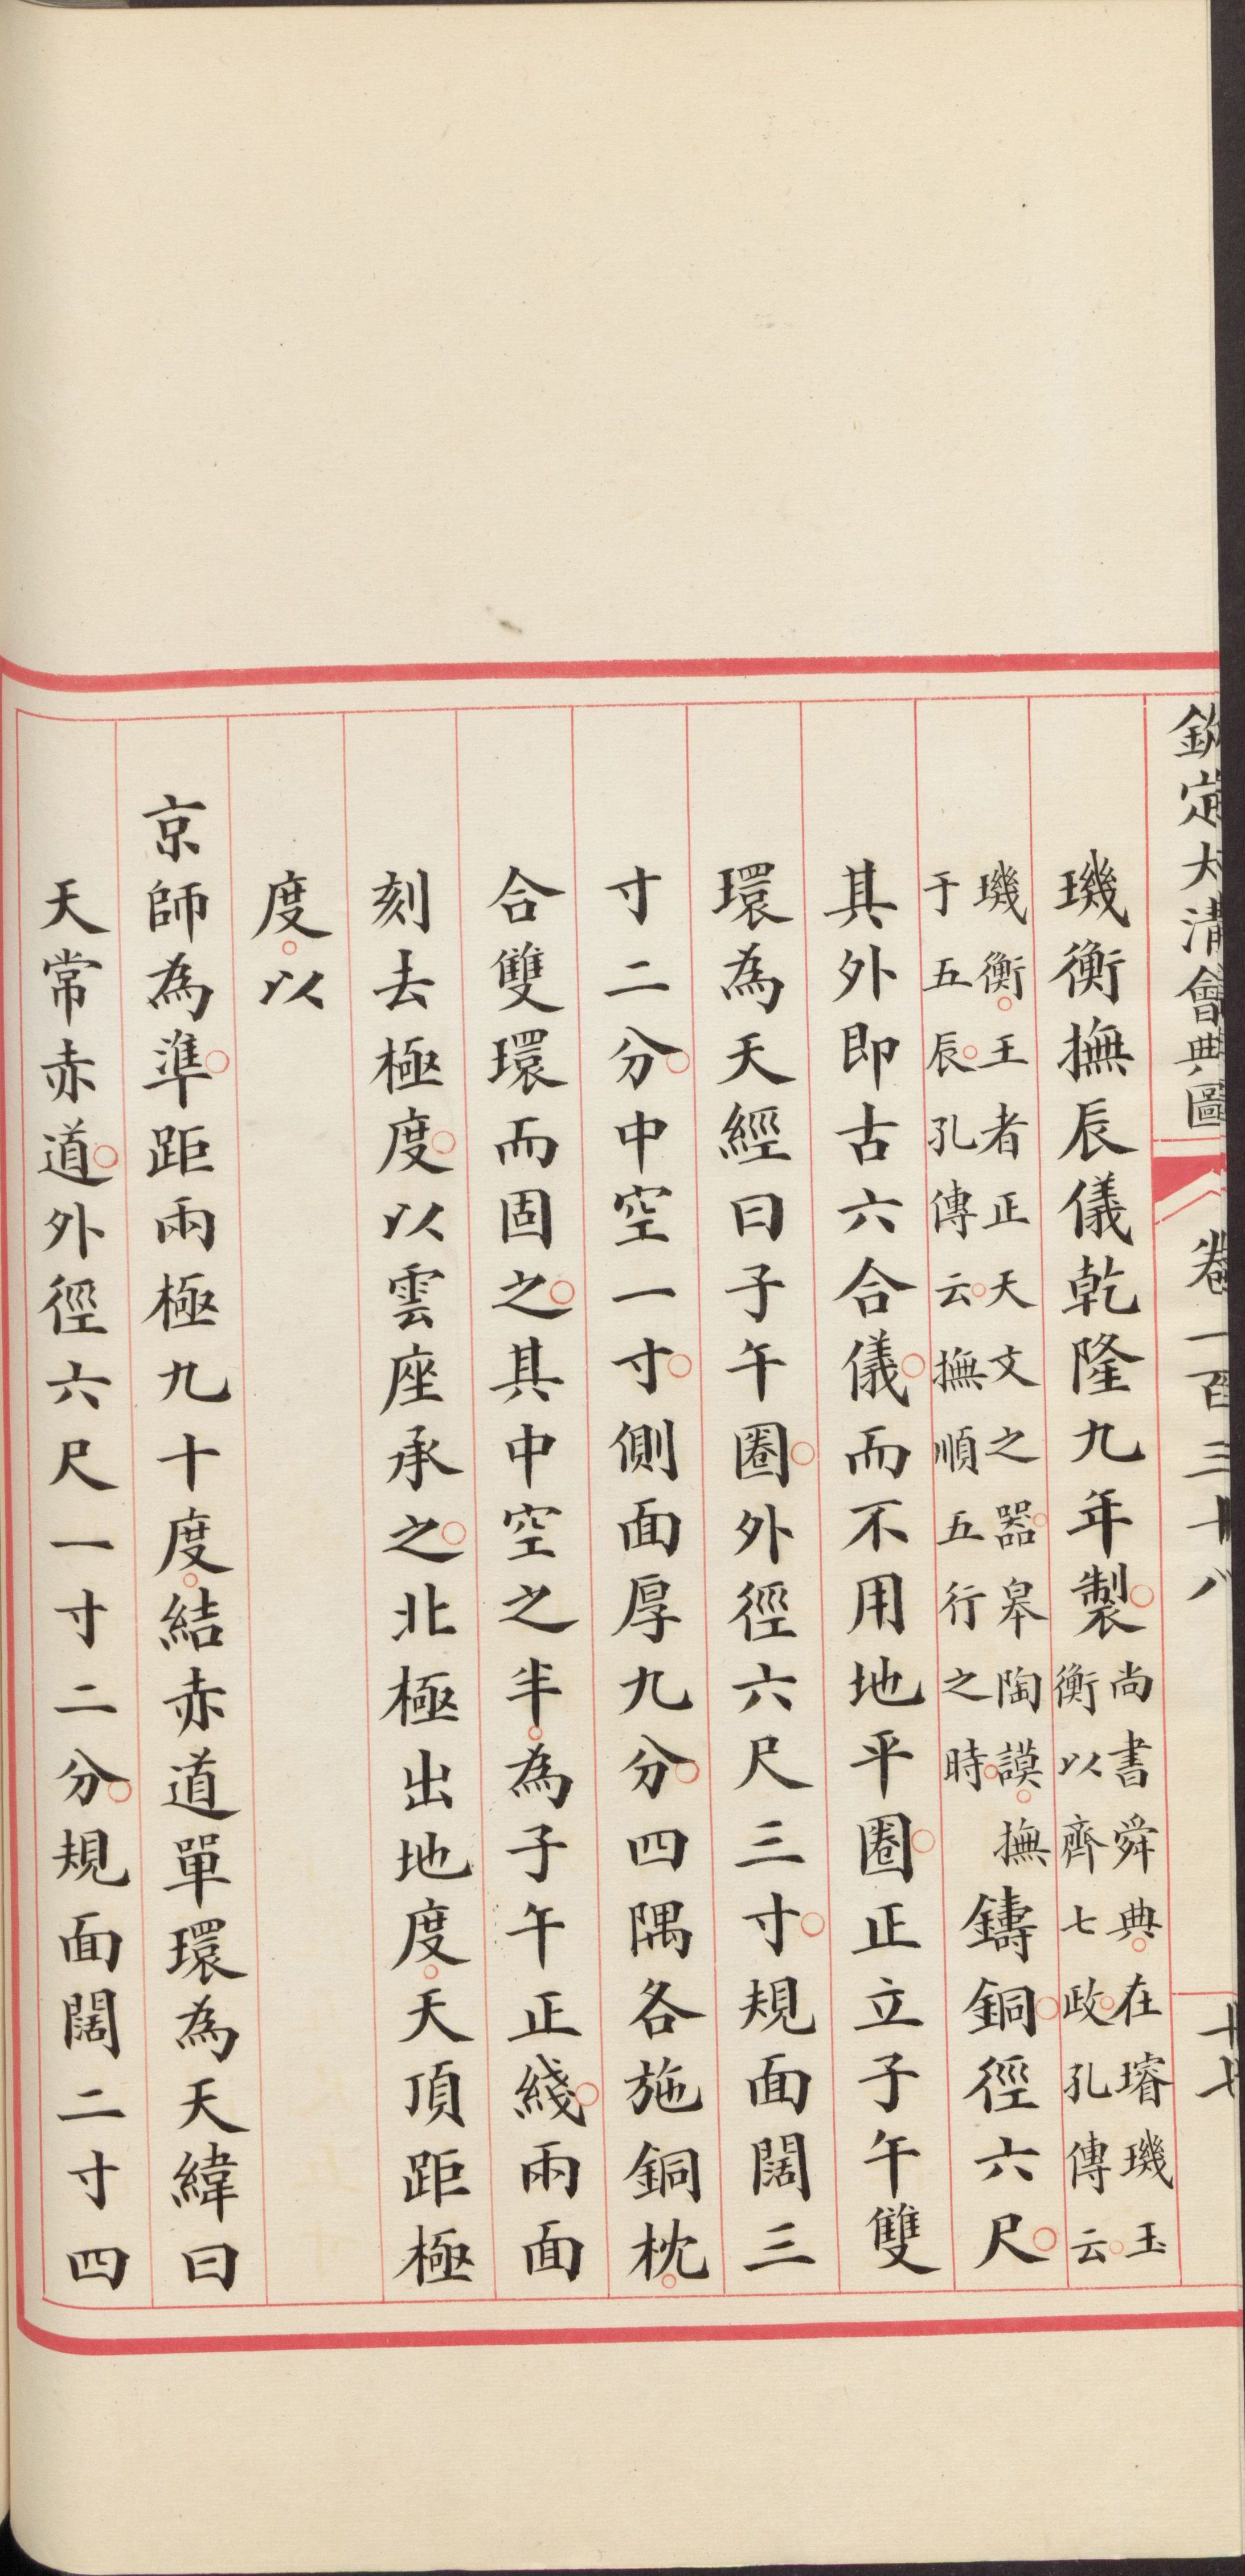 欽定大清會典圖 卷一百三十八 十七
璣衡撫辰儀乾隆九年製。尚書舜典。在璿璣玉衡以齊七政。孔傳云。
璣衡。王者正天文之器。皋陶謨。撫于五辰。孔傳云。撫順五行之時。鑄銅。徑六尺。
其外即古六合儀。而不用地平圈。正立子午雙
環為天經曰子午圈。外徑六尺三寸。規面闊三
寸二分。中空一寸。側面厚九分。四隅各施銅枕。
合雙環而固之。其中空之半。為子午正綫。兩面
刻去極度。以雲座承之。北極出地度。天頂距極
度。以
京師為準。距兩極九十度。結赤道單環為天緯曰
天常赤道。外徑六尺一寸二分。規面闊二寸四